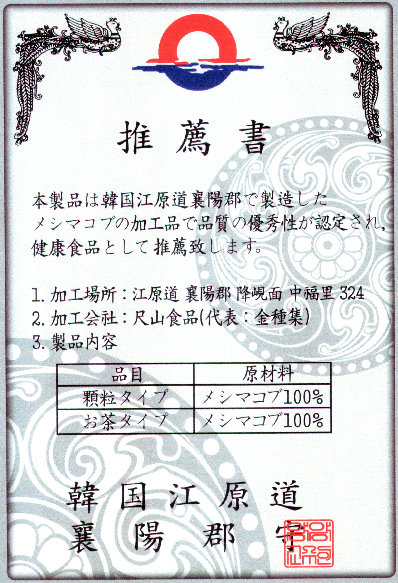 推薦書
本製品は韓国江原道襄陽郡で製造した
メシマコブの加工品で品質の優秀性が認定され,
健康食品として推薦致します。
1. 加工場所：江原道 襄陽郡 降峴面 中福里 324
2. 加工会社：尺山食品(代表：金種集)
3. 製品内容
品目 原材料
顆粒タイプ メシマコブ100%
お茶タイプ メシマコブ100%
韓国江原道
襄陽郡守